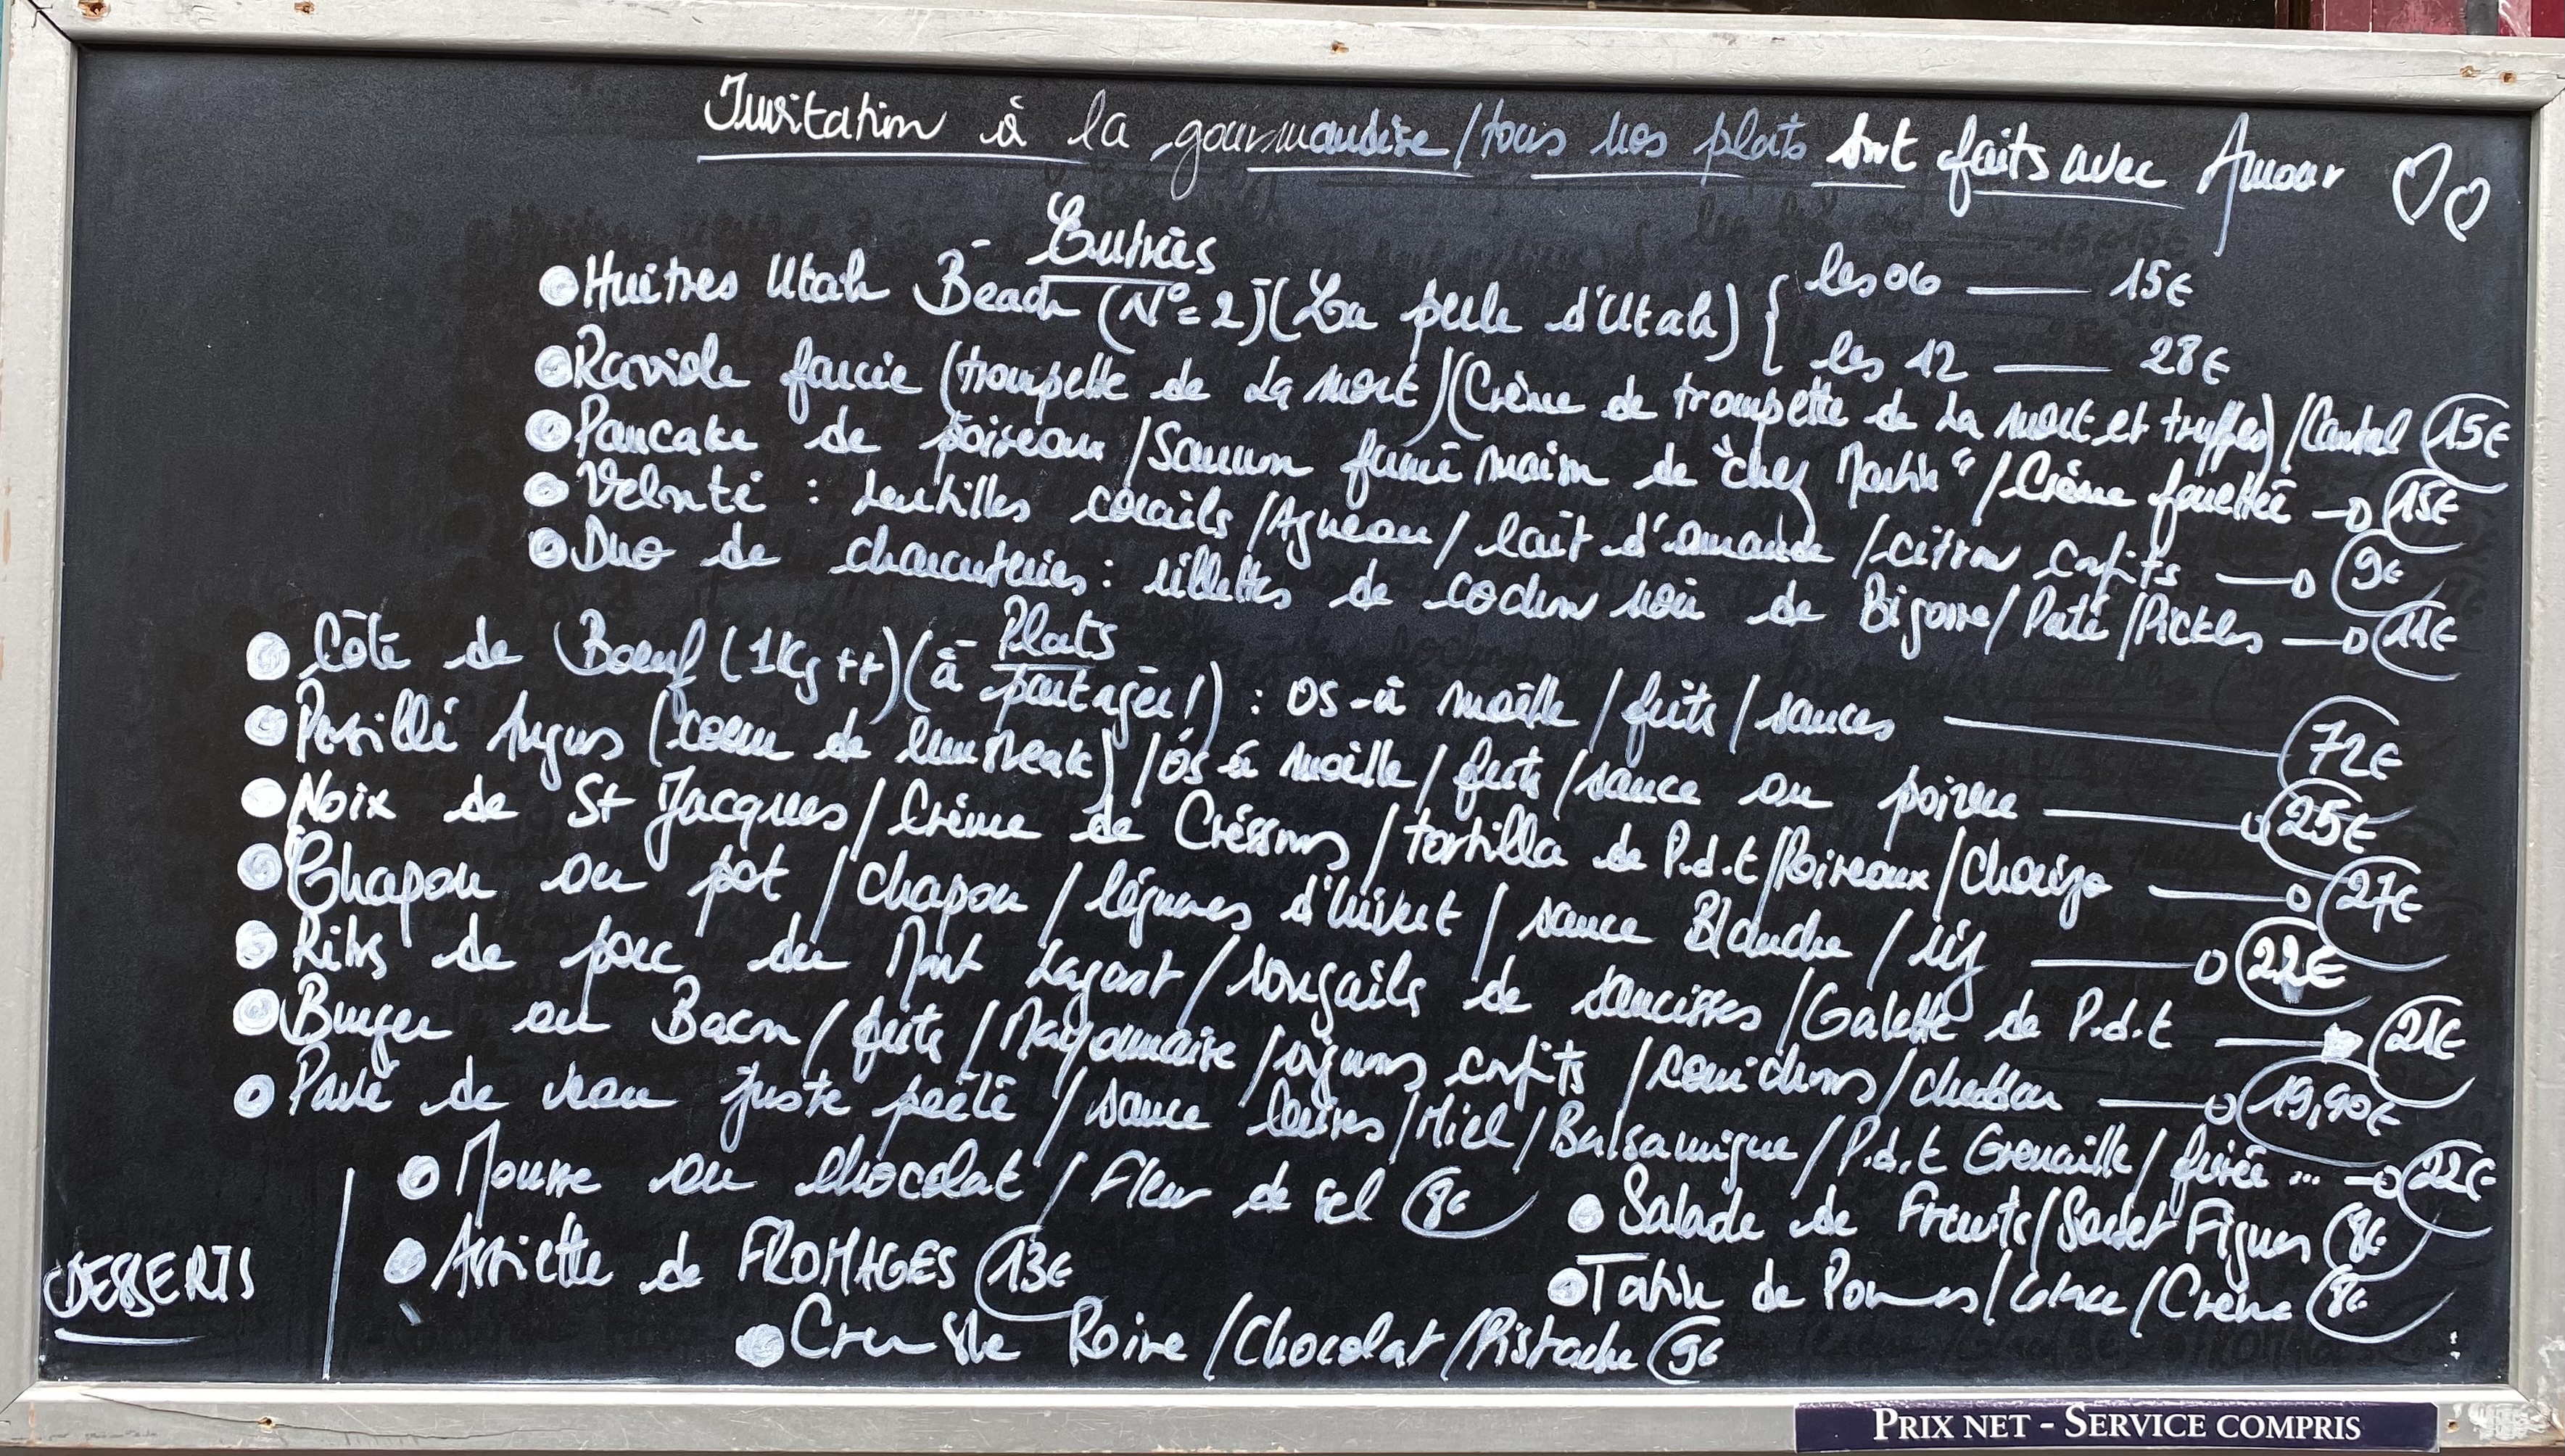 Invitation à la gourmandise / tous nos plats sont faits avec Amour
Entrées
Huitres Utah Beach (N°=2) (La perle d'Utah) { les 06 — 15€
les 12 — 28€
Raviole farcie (trompette de la mort) (Crème de trompette de la mort et truffes) / Cantal 15€
Pancake de poireaux / Saumon fumé maison de "chez Martin" / Crème fouettée 15€
Velouté : Lentilles corails / Agneau / lait d'amande / citron confits 9€
Duo de charcuteries : rillettes de cochon noir de Bigorre / Paté / Pickles 11€
Plats
Côte de Boeuf (1Kg ++) (à partager !) : os-à moëlle / frits / sauces 72€
Persillé Angus (coeur de rumsteak) / Os-à moëlle / frits / sauce au poivre 25€
Noix de St Jacques / Crème de Cressons / tortilla de P.d.t / Poireaux / Chorizo 27€
Chapon au pot / chapon / légumes d'hiver / sauce Blanche / riz 22€
Ribs de porc du Mont Lagast / rougails de saucisses / Galette de P.d.t 21€
Burger au Bacon / frits / Mayonnaise / oignons confits / cornichons / cheddar 19,90€
Pavé de veau juste poêlé / sauce / Miel / Balsamique / P.d.t Grenaille / purée ... 22€
DESSERTS
Mousse au chocolat / Fleur de sel 8€
Salade de Fruits / Sorbet Figues 8€
Assiette de FROMAGES 13€
Tatin de Pommes / Glace / Crème 8€
Crumble Poire / Chocolat / Pistache 9€
PRIX NET - SERVICE COMPRIS